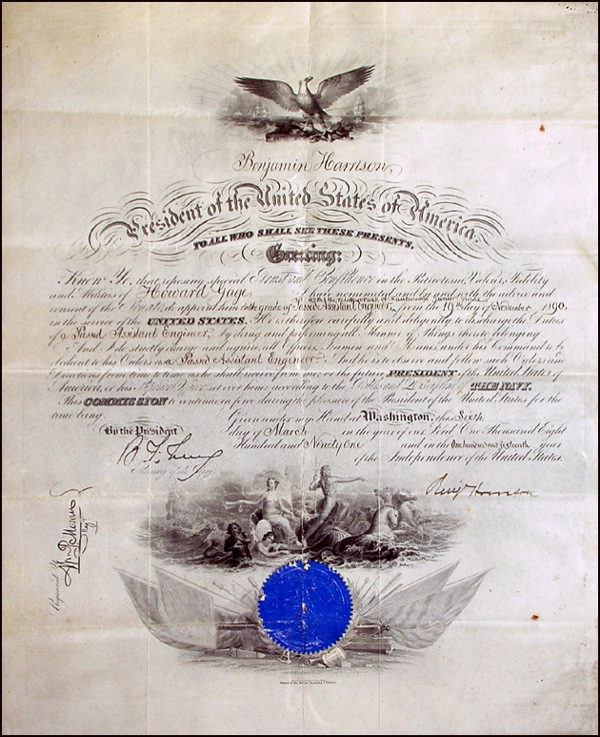 Benjamin Harrison,
President of the United States of America.
TO ALL WHO SHALL SEE THESE PRESENTS,
Greeting:
Know Ye, that reposing special Trust and Confidence in the Patriotism, Valour, Fidelity
and Abilities of Howard Gage I have nominated and by and with the advice and
consent of the Senate, do appoint him grade of Passed Assistant Engineer, from the 19th day of November 1890,
in the service of the UNITED STATES. He is therefore carefully and diligently to discharge the Duties
of a Passed Assistant Engineer, by doing and performing all Manner of Things thereto belonging.
And I do strictly charge and require all Officers, Seamen and Marines under his Command to be
obedient to his Orders as a Passed Assistant Engineer. And he is to observe and follow such Orders and
Directions from time to time as he shall receive from me, or the future PRESIDENT of the United States of
America, or his Superior Officer set over him, according to the Rules and Discipline of THE NAVY.
This COMMISSION to continue in force during the pleasure of the President of the United States for the
time being.
Given under my Hand at Washington, this Sixth
day of March in the year of our Lord One Thousand Eight
Hundred and Ninety One and in the One hundred and fifteenth year
of the Independence of the United States.
By the President
B. F. Tracy
Secretary of the Navy
Benj Harrison
Registered